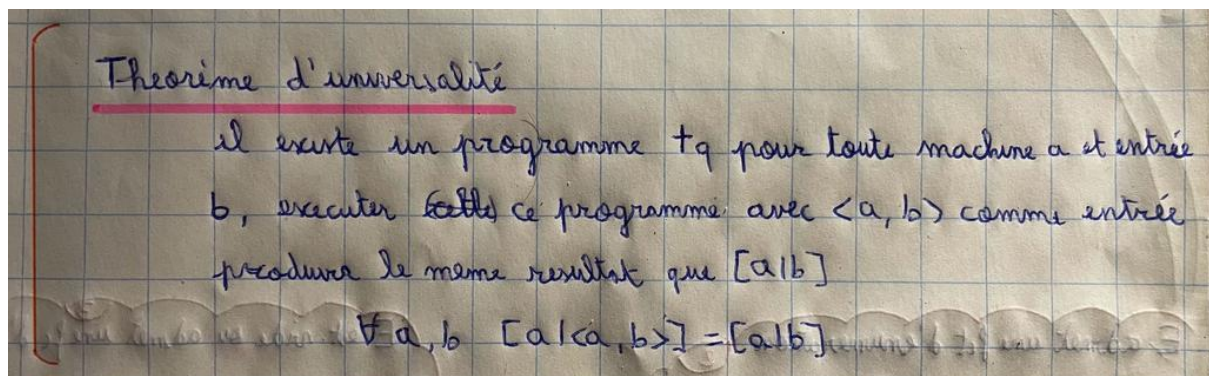 Theorème d'universalité
il existe un programme tq pour toute machine a et entrée
b, executer ce programme avec <a, b> comme entrée
produira le meme resultat que [a|b]
∀ a, b [a|<a, b>] = [a|b]